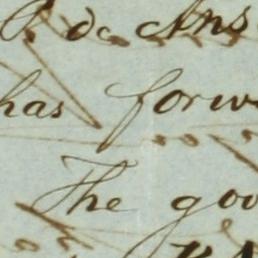 do Ans
has forw
The goo